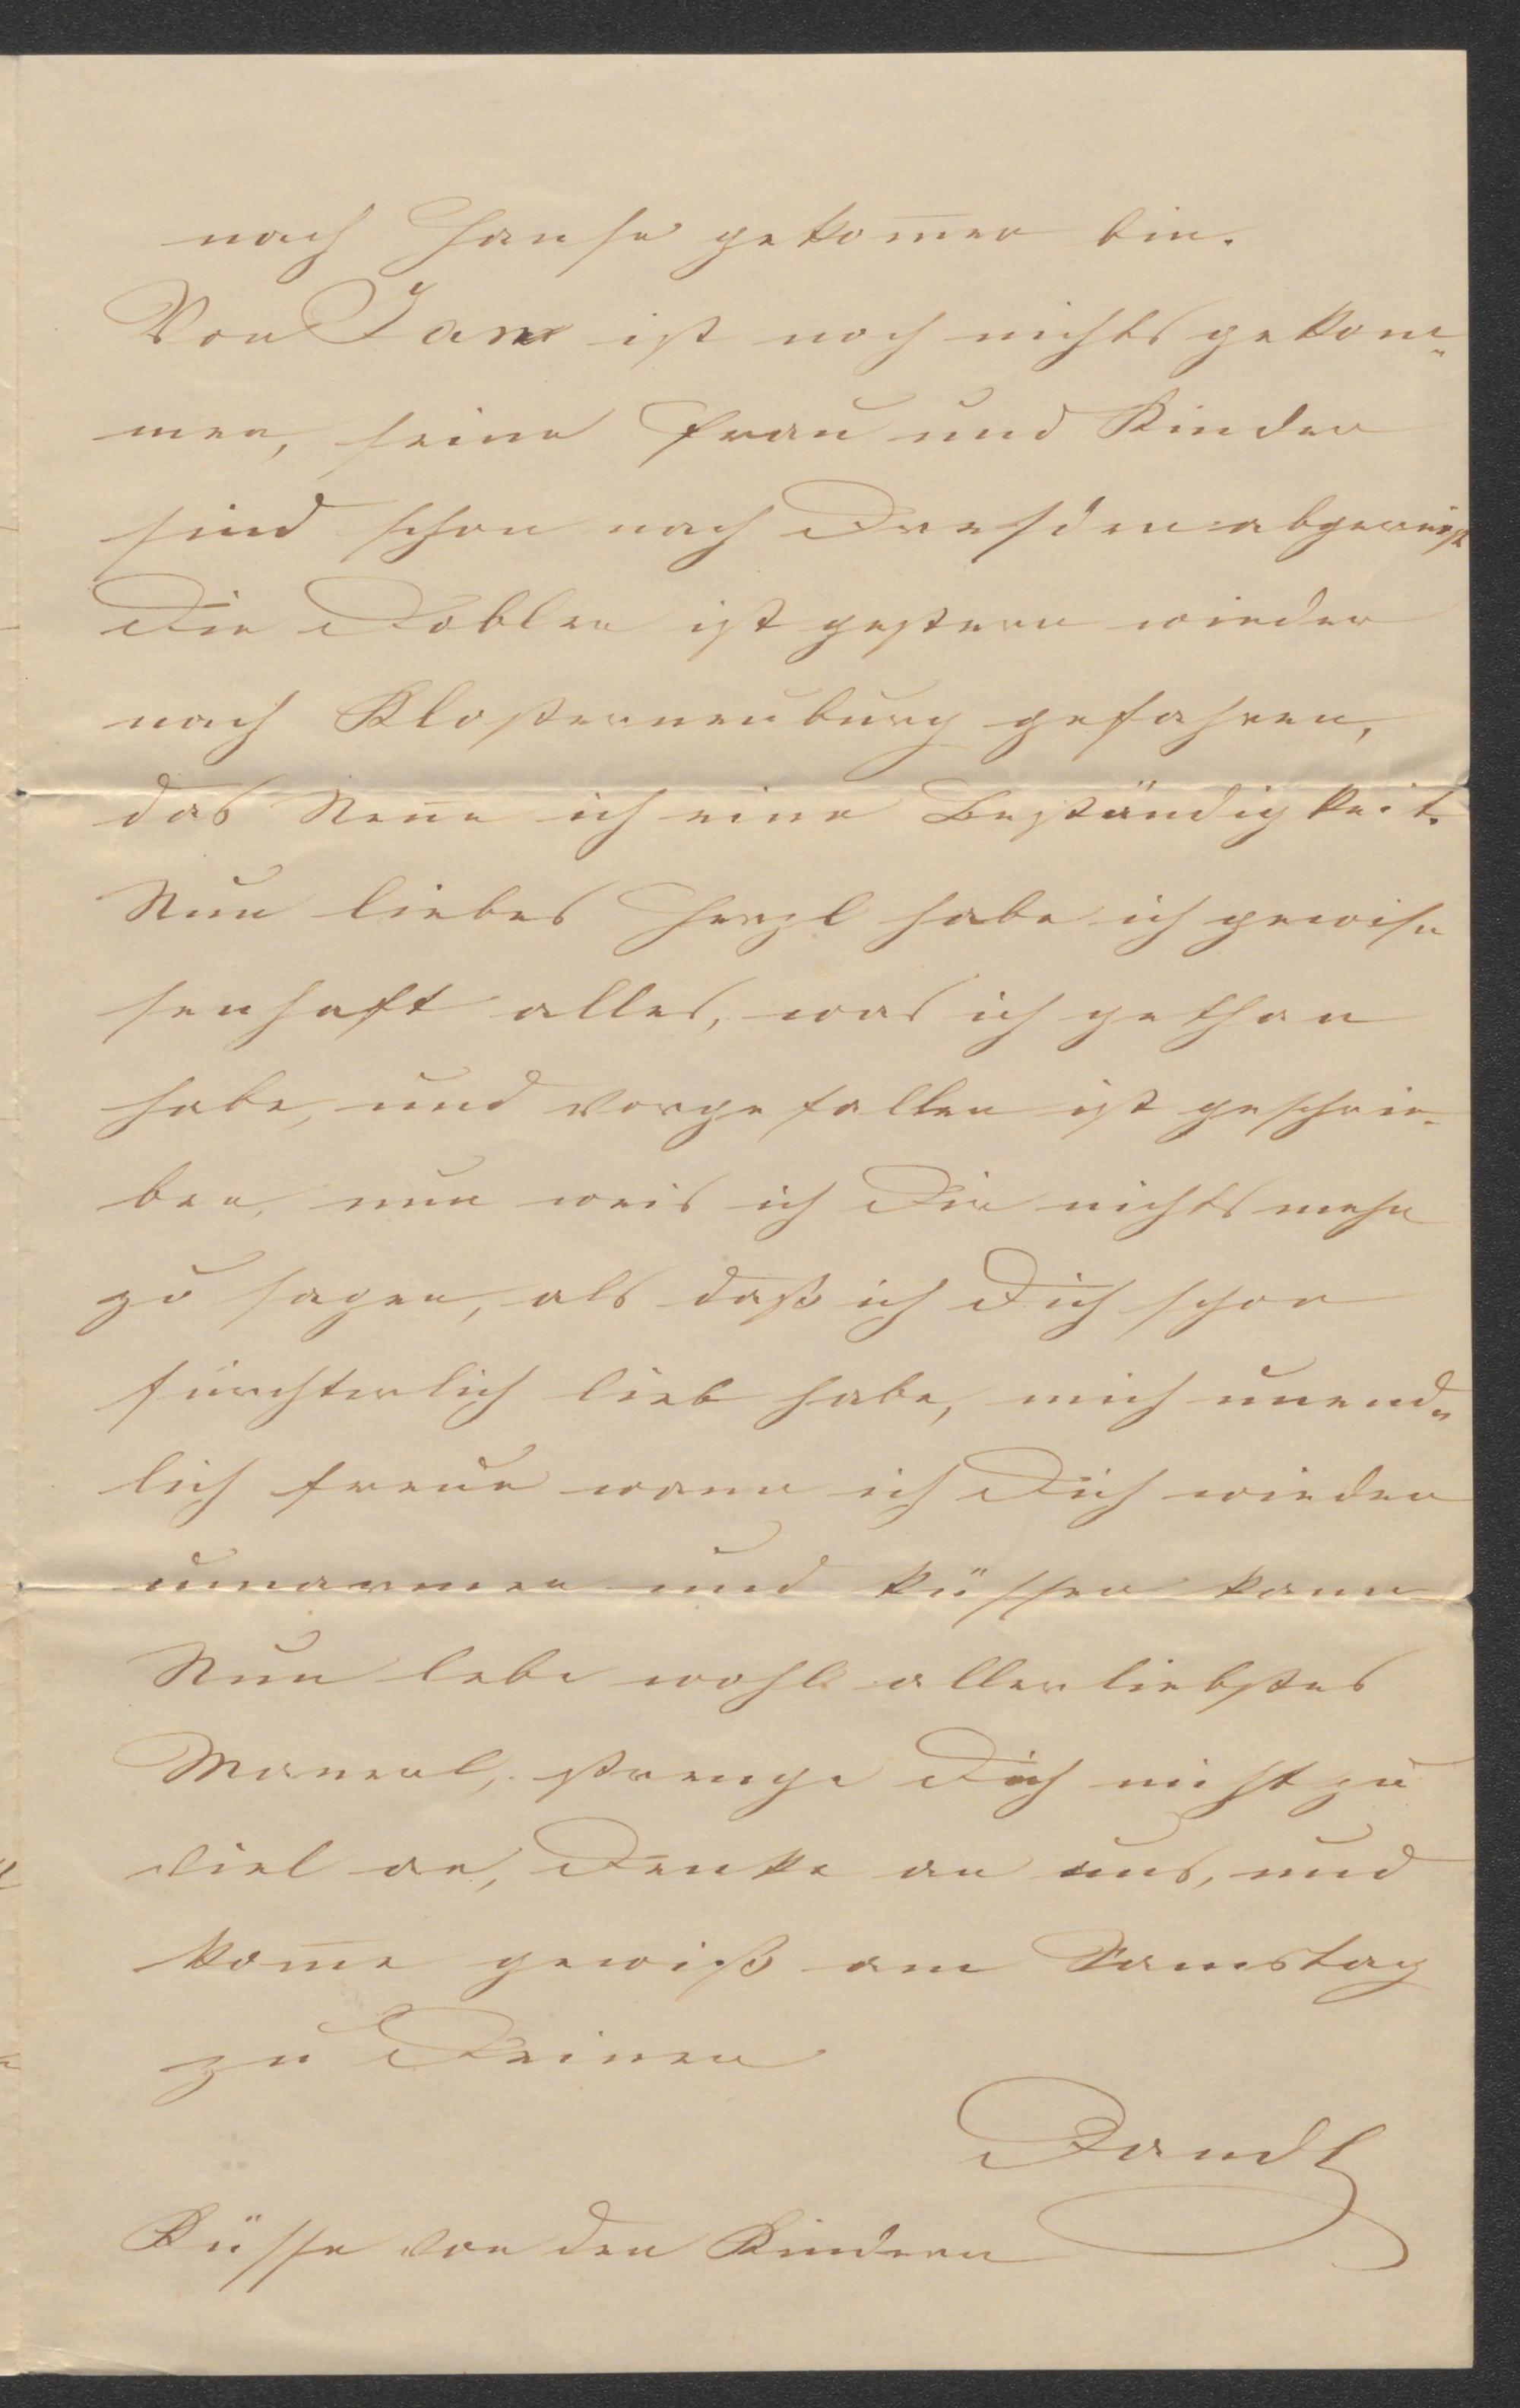 nach Hause gekom̄en bin.
Von Jan ist noch nichts gekom-
men, seine Frau und Kinder
sind schon nach Dresden abgereist
Die Dobler ist gestern wieder
nach Klosterneuburg gefahren,
das Nen̄e ich eine Beständigkeit.
Nun liebes Herzl habe ich gewis-
senhaft alles, was ich gethan
habe, und vorgefallen ist geschrie-
ben, nun weis ich Dir nichts mehr
zu sagen, als daß ich Dich schon
fürchterlich lieb habe, mich unend-
lich freue wann ich Dich wieder
umarmen und küssen kann
Nun lebe wohl allerliebstes
Manerl, strenge Dich nicht zu
viel an, Denke an uns, und
kom̄e gewiß am Samstag
zu Deiner
Küsse von den Kindern